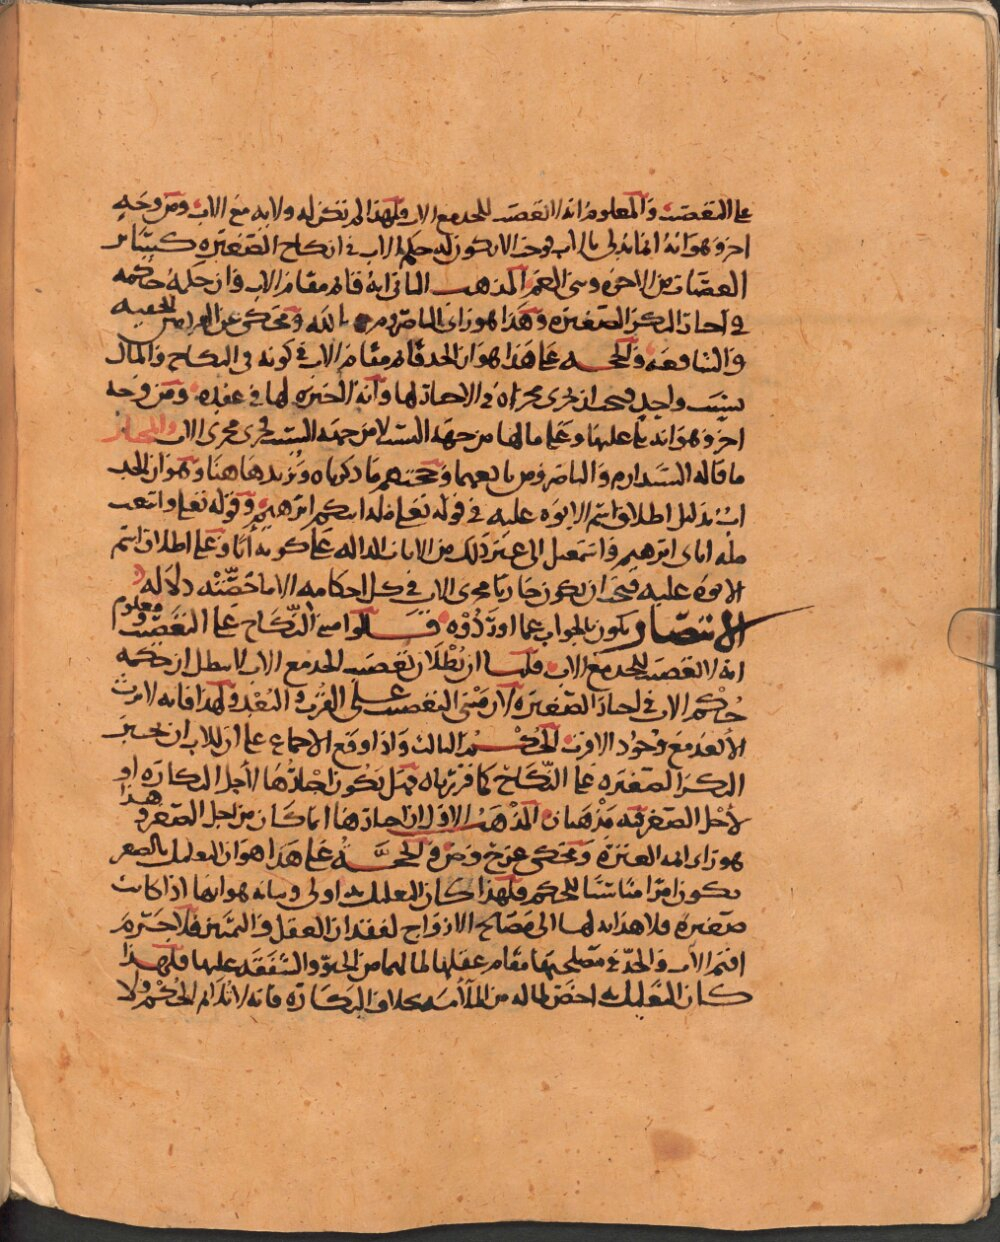 على التعصيب والمعلوم انه لا تعصيب للجد مع الاب فلهذا لم تكن له ولاية مع الاب ومن وجه
اخر وهو انه انما يدلي بالاب فوجب الا يكون له حكم الاب في انكاح الصغيره كسائر
العصبات من الاخوه وبني العم المذهب الثاني انه قائم مقام الاب وان حكمه حكمه
في اجبار البكر الصغيره وهذا هو راي الناصر وم بالله ومحكي عن الفريقين الحنفيه
والشافعيه والحجه على هذا هو ان الجد قائم مقام الاب في كونه في النكاح والمال
بسبب واحد فيجب ان يجرى مجراه في الاجبار لها وانه لا خيره لها في عقده ومن وجه
اخر وهو انه يلي عليها وعلى مالها من جهة النسب لا من جهة السبب فجرى مجرى الاب والمختار
ما قاله السيدان م والناصر ومن تابعهما وحجتهم ما ذكرناه ونزيد هاهنا وهو ان الجد
اب بدليل اطلاق اسم الابوه عليه في قوله تعلى مله ابيكم ابرهيم وقوله تعلى واتبعت
مله اباى ابرهيم واسمعيل الى غير ذلك من الايات الداله على كونه أبًا وعلى اطلاق اسم
الابوه عليه فيجب ان يكون جاريا مجرى الاب في كل احكامه الا ما خصَّتْه دلاله
الانتصار يكون بالجواب عما اوردوه قالوا مبنى النكاح على التعصيب ومعلوم
انه لا تعصيب للجد مع الاب قلنا ان بطلان تعصيب الجد مع الاب لا يبطل ان حكمه
حكم الاب في اجبار الصغيره لان مبنى التعصيب على القرب والبعد ولهذا فانه لا يرث
الابعد مع وجود الاقرب الحكم الثالث واذا وقع الاجماع على ان للاب ان يجبر
البكر الصغيره على النكاح كما قررناه فهل يكون اجبارها لاجل البكاره او
لاجل الصغر فيه مذهبان المذهب الاول ان اجبارها انما كان من اجل الصغر وهذا
هو راى ائمه العتره ومحكي عن ح وص والحجه على هذا هو ان التعليل بالصغر
يكون امرًا مناسبًا للحكم فلهذا كان التعليل به اولى وبيانه هو انها اذا كانت
صغيره فلا هدايه لها الى مصالح الازواج لفقدان العقل والتمييز فلا جرم
اقيم الاب والجد في مصلحتها مقام عقلها لما لهما من الحنو والشفقه عليها فلهذا
كان التعليل به اخص لما له من الملأمه بخلاف البكاره فانه لا تلائم الحكم ولا